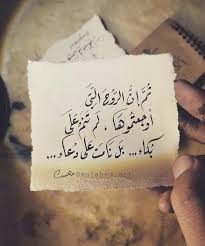 ثُمَّ إنَّ الرّوحَ الَّتِي
أوجَعتُموهَا ، لَم تَنَم عَلَى
بُكَاءٍ ... بَل نَامَت عَلَى دُعَاءٍ ...